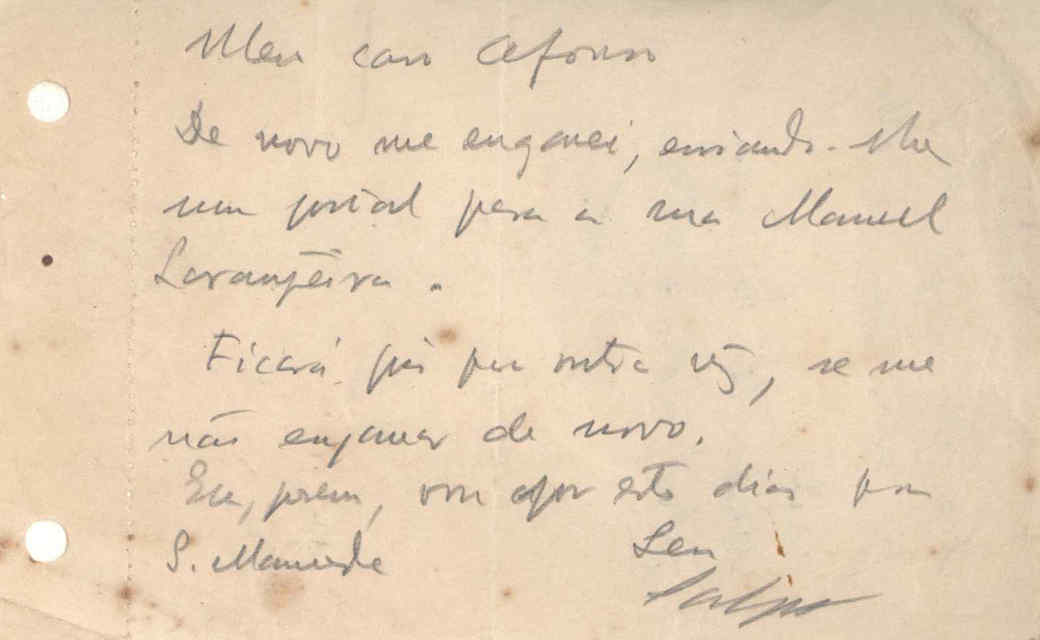 Meu caro Afonso
De novo me enganei, enviando-lhe
um postal para a rua Manuel
Laranjeira.
Ficará pois para outra vez, se me
não enganar de novo.
Eu, porém, vou por estes dias para
S. Mamede
Seu